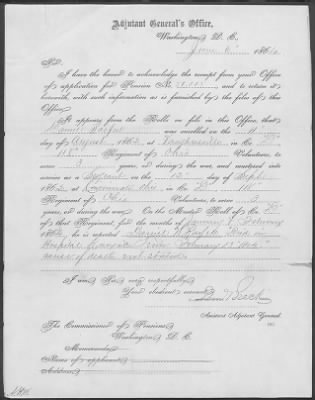 Adjutant General's Office,
Washington, D. C.
June 6" 186
Sir:
I have the honor to acknowledge the receipt from your Office
of application for Pension No. and to return it
herewith, with such information as is furnished by the files of this
Office.
It appears from the Rolls on file in this Office, that
was enrolled on the 11
day of August, 1862, at in Co. "B"
Regiment of Ohio Volunteers, to serve
3 years, or during the war, and mustered into
service as a Sergeant on the 12 day of Sept
1862, at Cincinnati Ohio, in Co. "B"
Regiment of Ohio Volunteers, to serve 3
years, or during the war. On the Muster Roll of Co. "B"
of that Regiment, for the months of January & February
1864, he is reported Died in
Hospital February 13 1864
cause of death not stated
I am, Sir, very respectfully,
Your obedient servant,
Assistant Adjutant General.
The Commissioner of Pensions,
Washington, D. C.
Memoranda:
Name of applicant,
Address,